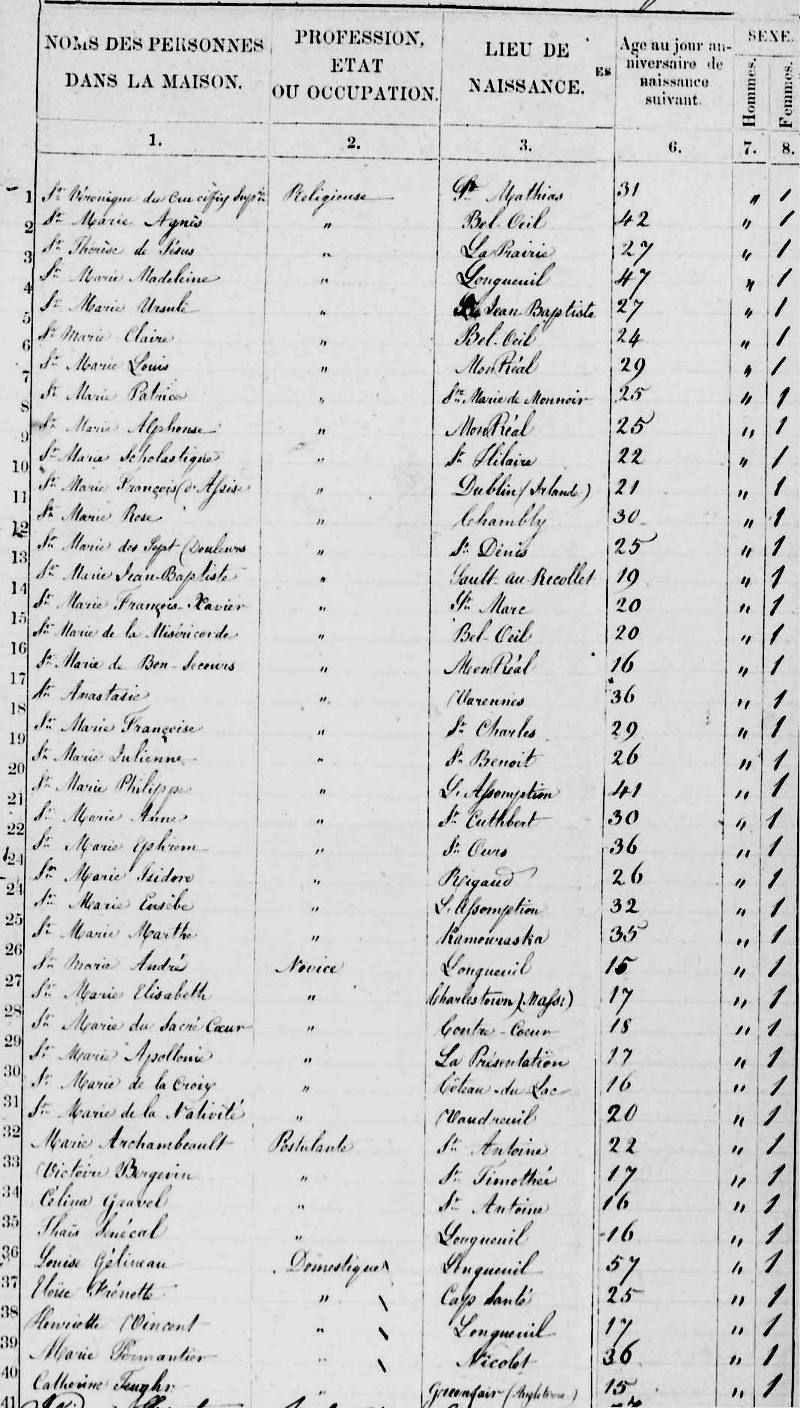 NOMS DES PERSONNES DANS LA MAISON. PROFESSION, ETAT OU OCCUPATION. LIEU DE NAISSANCE. ES Age au jour anniversaire de naissance suivant. SEXE. Hommes. Femmes.
1. 2. 3. 6. 7. 8.
1 Sr Véronique du Crucifix Religieuse St Mathias 31 " 1
2 Sr Marie Agnès " Bel-Oeil 42 " 1
3 Sr Thérèse de Jésus " La Prairie 27 " 1
4 Sr Marie Madeleine " Longueuil 47 " 1
5 Sr Marie Ursule " St Jean-Baptiste 27 " 1
6 Sr Marie Claire " Bel-Oeil 24 " 1
7 Sr Marie Louis " Montréal 29 " 1
8 Sr Marie Patrice " Ste Marie de Monnoir 25 " 1
9 Sr Marie Alphonse " Montréal 25 " 1
10 Sr Marie Scholastique " St Hilaire 22 " 1
11 Sr Marie François d'Assise " Dublin (Irlande) 21 " 1
12 Sr Marie Rose " Chambly 30 " 1
13 Sr Marie des Sept Douleurs " St Dénis 25 " 1
14 Sr Marie Jean-Baptiste " Sault-au-Recollet 19 " 1
15 Sr Marie François-Xavier " St Marc 20 " 1
16 Sr Marie de la Miséricorde " Bel-Oeil 20 " 1
17 Sr Marie de Bon-Secours " Montréal 16 " 1
18 Sr Anastasie " Varennes 36 " 1
19 Sr Marie Françoise " St Charles 29 " 1
20 Sr Marie Julienne " St Benoit 26 " 1
21 Sr Marie Philippe " L'Assomption 41 " 1
22 Sr Marie Anne " St Cuthbert 30 " 1
24 Sr Marie Ephrem " St Ours 36 " 1
24 Sr Marie Isidore " Rigaud 26 " 1
25 Sr Marie Eusèbe " L'Assomption 32 " 1
26 Sr Marie Marthe " Kamouraska 35 " 1
27 Sr Marie André Novice Longueuil 15 " 1
28 Sr Marie Elisabeth " Charlestown (Mass:) 17 " 1
29 Sr Marie du Sacré Coeur " Contre-Coeur 18 " 1
30 Sr Marie Apollonie " La Présentation 17 " 1
31 Sr Marie de la Croix " Côteau-du-Lac 16 " 1
32 Sr Marie de la Nativité " Vaudreuil 20 " 1
33 Marie Archambeault Postulante St Antoine 22 " 1
34 Victoire Bergevin " St Timothée 17 " 1
35 Célina Gravel " St Antoine 16 " 1
36 Thaïs Sénécal " Longueuil 16 " 1
37 Louise Gélineau Domestique Longueuil 57 " 1
38 Eloïse Frénette " Cap Santé 25 " 1
39 Henriette Vincent " Longueuil 17 " 1
40 Marie " Nicolet 36 " 1
41 Catherine " (Angleterre) 15 " 1